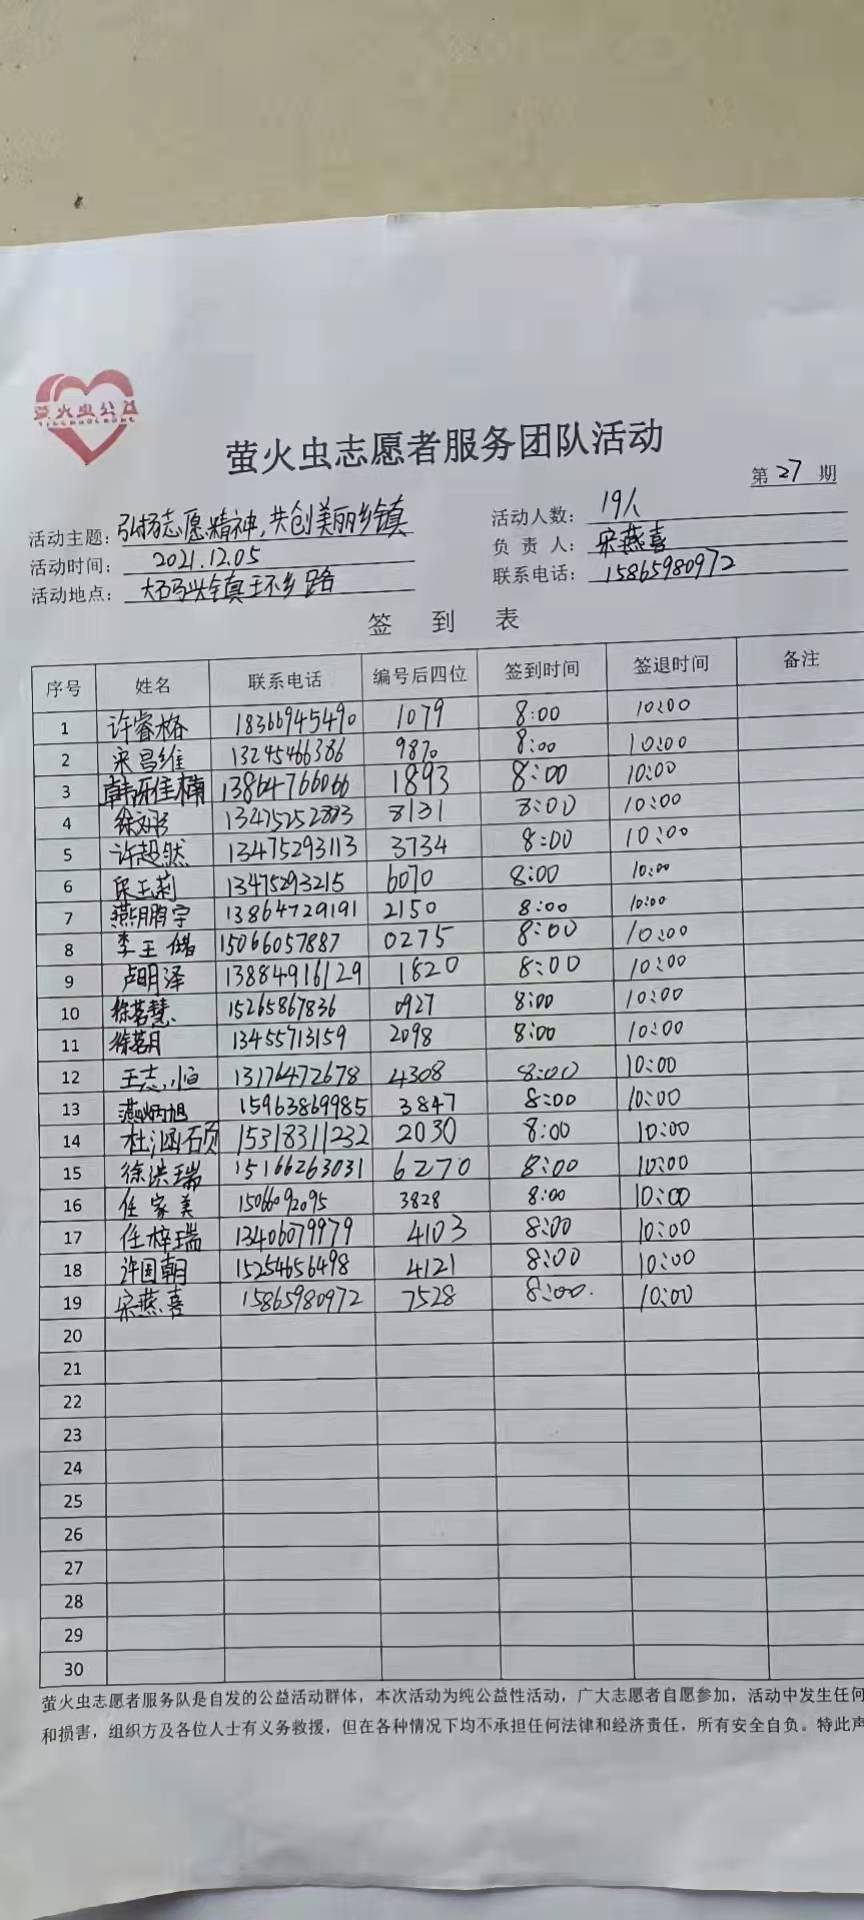 萤火虫公益
YINGHUOCHONG
萤火虫志愿者服务团队活动
第27期
活动主题：弘扬志愿精神，共创美丽乡镇
活动人数：19人
活动时间：2021.12.05
负责人：宋燕喜
活动地点：大码头镇王环乡路
联系电话：15865980972
签到表
序号 姓名 联系电话 编号后四位 签到时间 签退时间 备注
1 许睿格 18366945490 1079 8:00 10:00
2 宋昌维 13245466386 9870 8:00 10:00
3 韩陈佳楠 13864766066 1893 8:00 10:00
4 13475252883 8131 8:00 10:00
5 许超然 13475293113 3734 8:00 10:00
6 玉莉 13475293215 6070 8:00 10:00
7 燕鹏宇 13864729191 2150 8:00 10:00
8 李王储 15066057887 0275 8:00 10:00
9 卢明泽 13884916129 1820 8:00 10:00
10 徐茗慧 15265867836 0927 8:00 10:00
11 徐茗月 13455713159 2098 8:00 10:00
12 王志恒 13176472678 4308 8:00 10:00
13 燕炳旭 15963869985 3847 8:00 10:00
14 杜涵硕 15318311232 2030 8:00 10:00
15 徐洪瑞 15166263031 6270 8:00 10:00
16 任家美 15066092095 3828 8:00 10:00
17 任梓瑞 13406079979 4103 8:00 10:00
18 许国朝 15254656498 4121 8:00 10:00
19 宋燕喜 15865980972 7528 8:00. 10:00
20
21
22
23
24
25
26
27
28
29
30
萤火虫志愿者服务队是自发的公益活动群体，本次活动为纯公益性活动，广大志愿者自愿参加，活动中发生任何
和损害，组织方及各位人士有义务救援，但在各种情况下均不承担任何法律和经济责任，所有安全自负。特此声